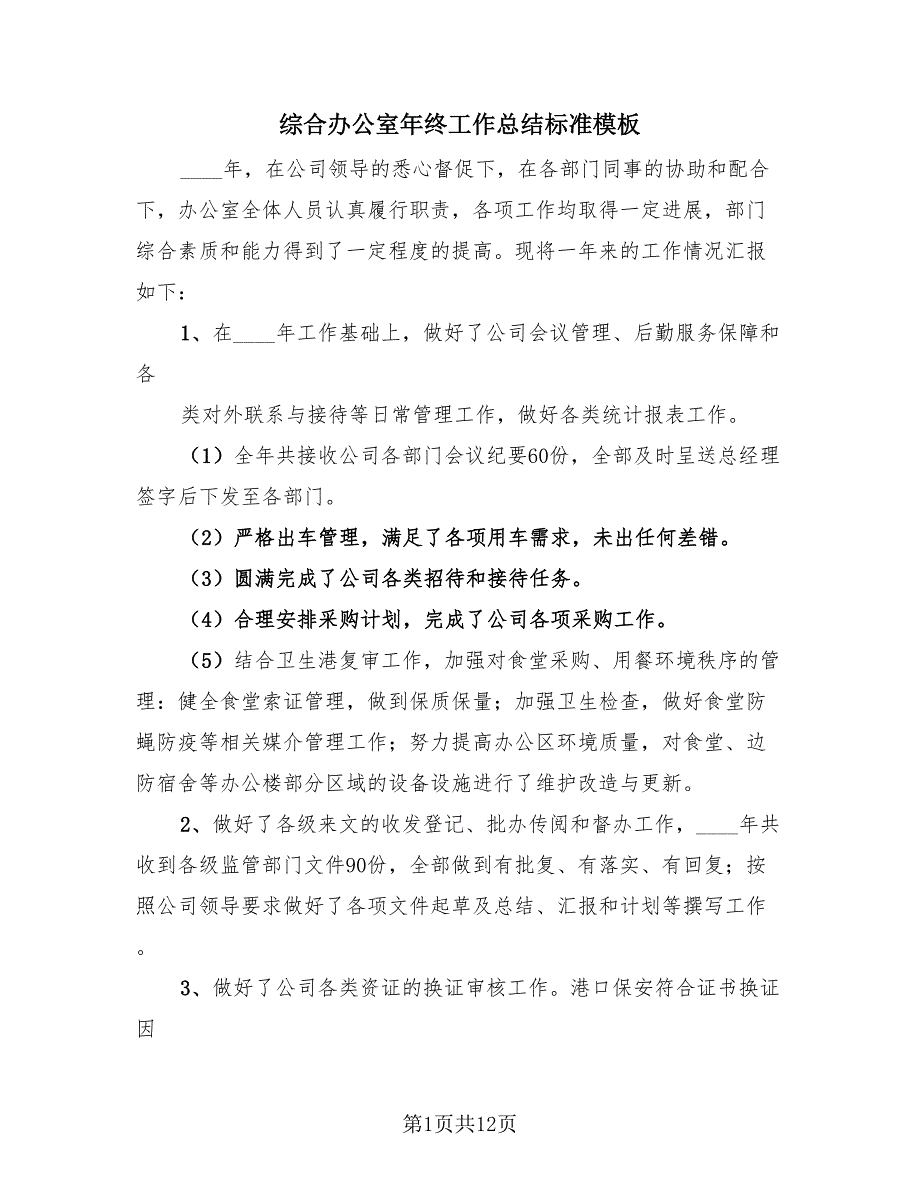 综合办公室年终工作总结标准模板
____年，在公司领导的悉心督促下，在各部门同事的协助和配合
下，办公室全体人员认真履行职责，各项工作均取得一定进展，部门
综合素质和能力得到了一定程度的提高。现将一年来的工作情况汇报
如下：
1、在____年工作基础上，做好了公司会议管理、后勤服务保障和
各
类对外联系与接待等日常管理工作，做好各类统计报表工作。
（1）全年共接收公司各部门会议纪要60份，全部及时呈送总经理
签字后下发至各部门。
（2）严格出车管理，满足了各项用车需求，未出任何差错。
（3）圆满完成了公司各类招待和接待任务。
（4）合理安排采购计划，完成了公司各项采购工作。
（5）结合卫生港复审工作，加强对食堂采购、用餐环境秩序的管
理：健全食堂索证管理，做到保质保量；加强卫生检查，做好食堂防
蝇防疫等相关媒介管理工作；努力提高办公区环境质量，对食堂、边
防宿舍等办公楼部分区域的设备设施进行了维护改造与更新。
2、做好了各级来文的收发登记、批办传阅和督办工作，____年共
收到各级监管部门文件90份，全部做到有批复、有落实、有回复；按
照公司领导要求做好了各项文件起草及总结、汇报和计划等撰写工作
。
3、做好了公司各类资证的换证审核工作。港口保安符合证书换证
因
第1页共12页